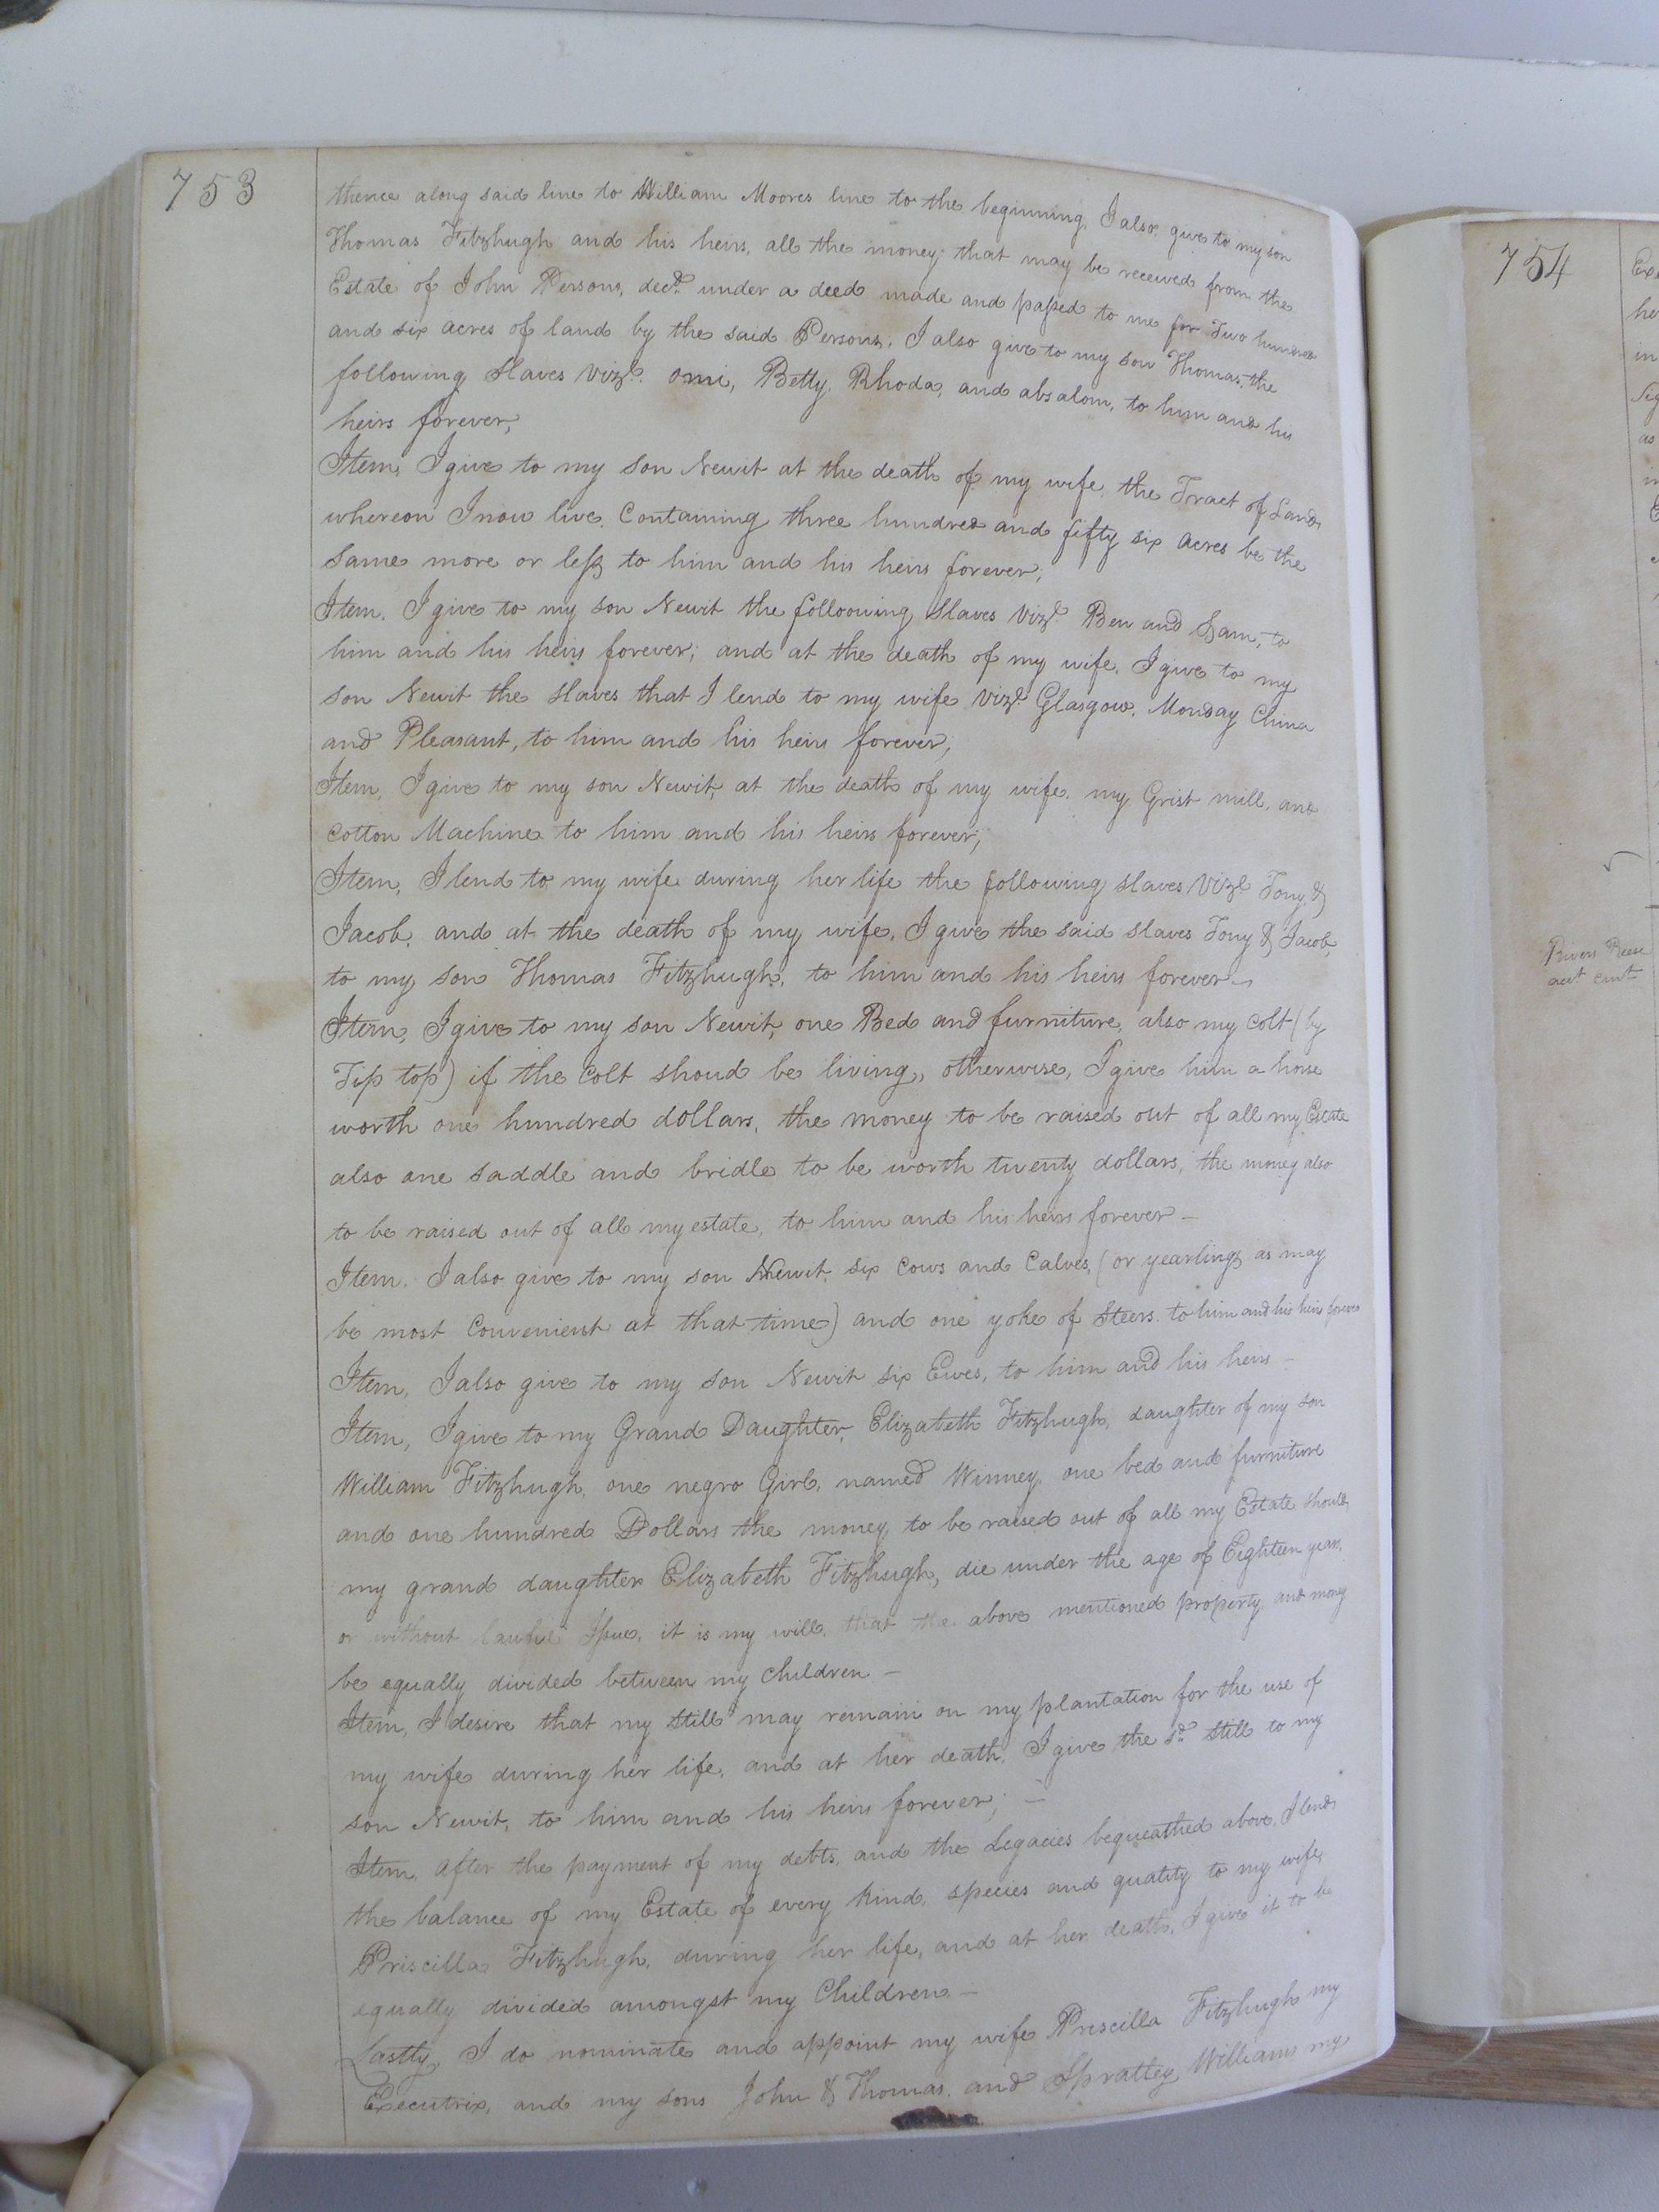 753
thence along said line to William Moores line to the beginning. I also give to my son
Thomas Fitzhugh and his heirs, all the money that may be received from the
Estate of John Persons, decd. under a deed made and passed to me for Two hundred
and six acres of land by the said Persons, I also give to my son Thomas, the
following slaves Vizt. Omi, Betty, Rhoda, and absalom, to him and his
heirs forever,
Item, I give to my son Newit at the death of my wife, the Tract of Land
whereon I now live, Containing three hundred and fifty six acres be the
same more or less to him and his heirs forever;
Item, I give to my son Newit the following slaves Vizt. Ben and Sam, to
him and his heirs forever; and at the death of my wife, I give to my
son Newit the slaves that I lend to my wife Vizt. Glasgow, Monday China
and Pleasant, to him and his heirs forever;
Item, I give to my son Newit, at the death of my wife, my Grist mill, and
Cotton Machine to him and his heirs forever;
Item, I lend to my wife during her life the following slaves Vizt Tony &
Jacob, and at the death of my wife, I give the said slaves Tony & Jacob,
to my son Thomas Fitzhugh, to him and his heirs forever—
Item, I give to my son Newit, one Bed and furniture, also my colt (by
Tip top) if the colt shoud be living, otherwise, I give him a horse
worth one hundred dollars, the money to be raised out of all my Estate
also one saddle and bridle to be worth twenty dollars, the money also
to be raised out of all my estate, to him and his heirs forever—
Item. I also give to my son Newit six Cows and Calves, (or yearlings as may
be most Convenient at that time) and one yoke of Steers. to him and his heirs forever
Item, I also give to my son Newit six Ewes, to him and his heirs—
Item, I give to my Grand Daughter, Elizabeth Fitzhugh, daughter of my son
William Fitzhugh, one negro Girl, named Winney, one bed and furniture
and one hundred Dollars the money to be raised out of all my Estate should
my grand daughter Elizabeth Fitzhugh, die under the age of Eighteen years,
or without lawful Issue, it is my will, that the above mentioned property and money
be equally divided between my children—
Item, I desire that my still may remain on my plantation for the use of
my wife during her life, and at her death, I give the sd. still to my
son Newit, to him and his heirs forever; —
Item, after the payment of my debts, and the Legacies bequeathed above, I lend
the balance of my Estate of every kind, species and quality to my wife
Priscilla Fitzhugh, during her life, and at her death, I give it to be
equally divided amongst my Children—
Lastly, I do nominate and appoint my wife Priscilla Fitzhugh my
Executrix, and my sons John & Thomas, and Spratley Williams my
754
in
as
Rivers Reese
acct curt